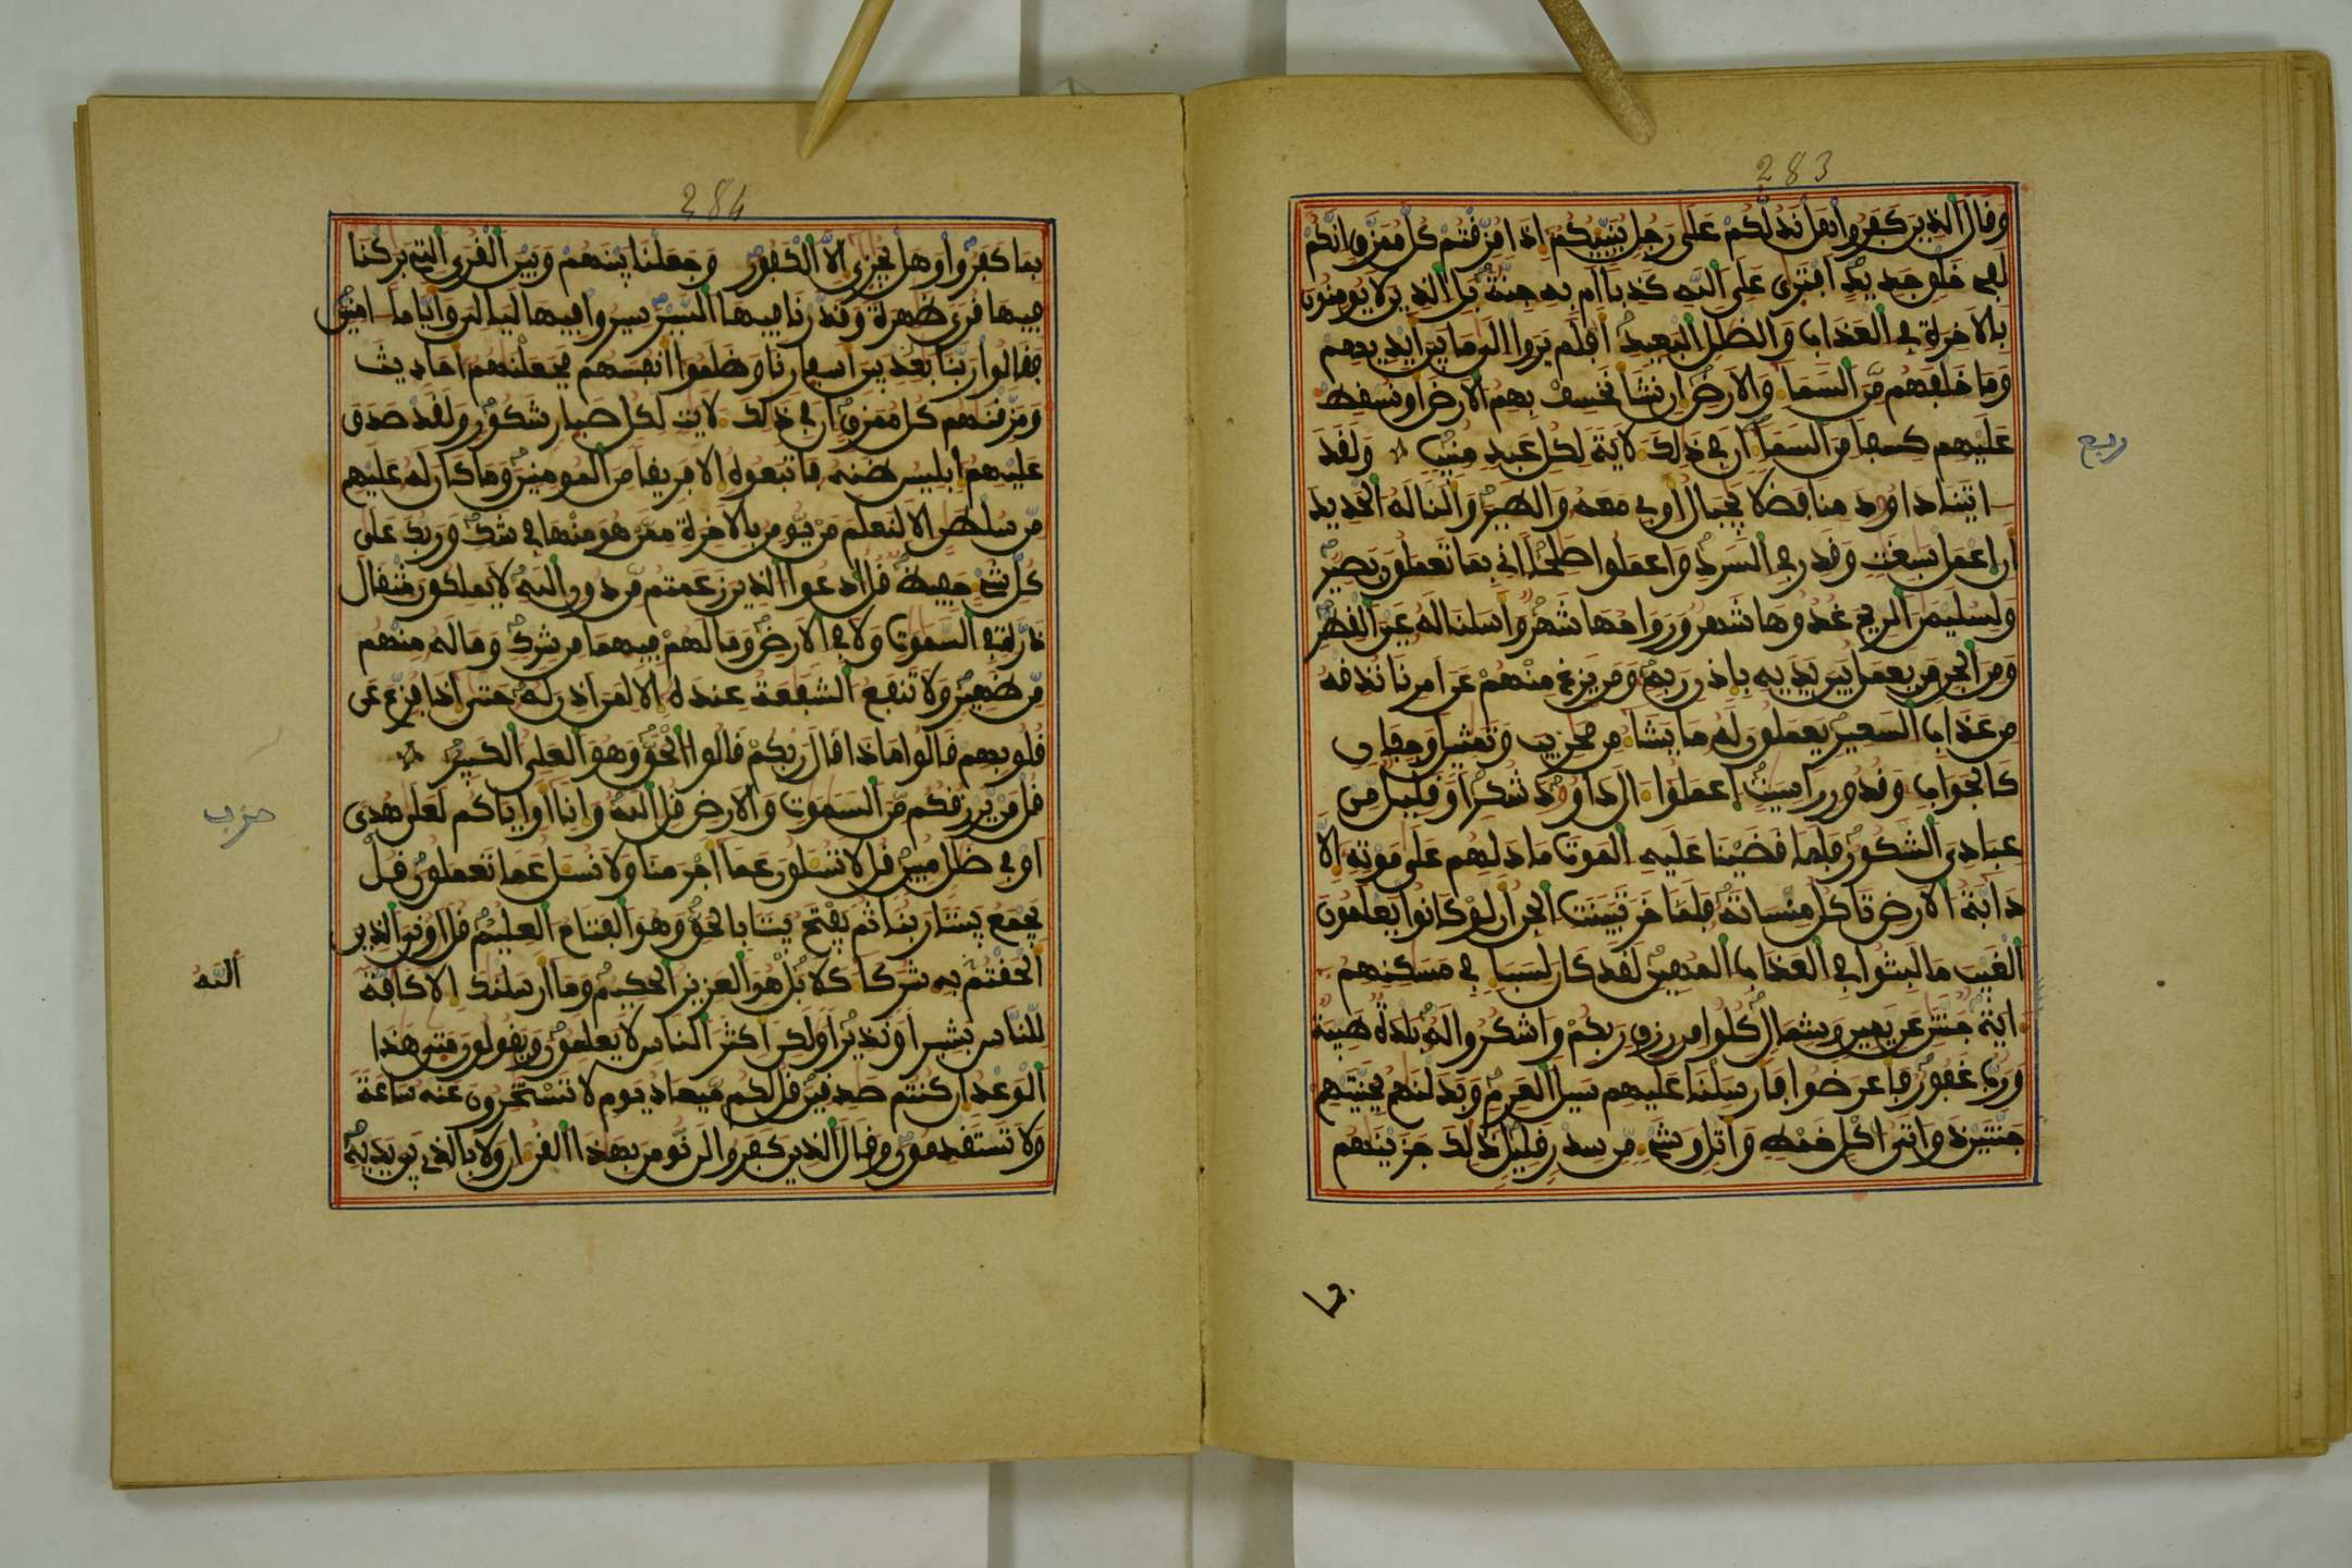 283
وقال الذين كفروا هل ندلكم على رجل ينبيكم إذا مزقتم كل ممزق إنكم
لفي خلق جديد افترى على الله كذبا أم به جنة بل الذين لا يومنون
بالاخرة في العذاب والضلل البعيد أفلم يروا الى ما بين أيديهم
وما خلفهم من السماء والارض إن نشأ نخسف بهم الارض أو نسقط
عليهم كسفا من السماء ان في ذلك لآية لكل عبد منيب ولقد
ربع
اتينا داوود منا فضلا يجبال أوبي معه والطير وألنا له الحديد
أن اعمل سبغت وقدر في السرد واعملوا صلحا اني بما تعملون بصير
ولسليمن الريح غدوها شهر ورواحها شهر وأسلنا له عين القطر
ومن الجن من يعمل بين يديه باذن ربه ومن يزغ منهم عن امرنا نذقه
من عذاب السعير يعملون له ما يشاء من محريب وتمثيل وجفان
كالجواب وقدور راسيت اعملوا ءال داوود شكرا وقليل من
عبادي الشكور فلما قضينا عليه الموت ما دلهم على موته إلا
دابة الارض تاكل منساته فلما خر تبينت الجن أن لو كانوا يعلمون
الغيب ما لبثوا في العذاب المهين لقد كان لسبإ في مسكنهم
ءاية جنتن عن يمين وشمال كلوا من رزق ربكم واشكروا له بلدة طيبة
ورب غفور فأعرضوا فأرسلنا عليهم سيل العرم وبدلنهم بجنتيهم
جنتين ذواتى اكل خمط وأثل وشيء من سدر قليل ذلك جزينهم
284
بما كفروا وهل يجزى إلا الكفور وجعلنا بينهم وبين القرى التي بركنا
فيها قرى ظهرة وقدرنا فيها السير سيروا فيها ليالي وأياما امنين
فقالوا ربنا بعد بين أسفارنا وظلموا أنفسهم فجعلنهم أحاديث
ومزقنهم كل ممزق ان في ذلك لايت لكل صبار شكور ولقد صدق
عليهم إبليس ظنه فاتبعوه إلا فريقا من المومنين وما كان له عليهم
من سلطن إلا لنعلم من يومن بالاخرة ممن هو منها في شك وربك على
كل شيء حفيظ قل ادعوا الذين زعمتم من دون الله لا يملكون مثقال
ذرة في السموت ولا في الارض وما لهم فيهما من شرك وما له منهم
من ظهير ولا تنفع الشفعة عنده إلا لمن اذن له حتى اذا فزع عن
قلوبهم قالوا ماذا قال ربكم قالوا الحق وهو العلي الكبير
قل من يرزقكم من السموت والارض قل الله وإنا أو اياكم لعلى هدى
حزب
او في ضلل مبين قل لا تسلون عما أجرمنا ولا نسل عما تعملون قل
يجمع بيننا ربنا ثم يفتح بيننا بالحق وهو الفتاح العليم قل اروني الذين
ألحقتم به شركا كلا بل هو العزيز الحكيم وما أرسلنك إلا كافة
الله
للناس بشيرا ونذيرا ولكن اكثر الناس لا يعلمون ويقولون متى هذا
الوعد ان كنتم صدقين قل لكم ميعاد يوم لا تستخرون عنه ساعة
ولا تستقدمون وقال الذين كفروا لن نومن بهذا القران ولا بالذي بين يديه